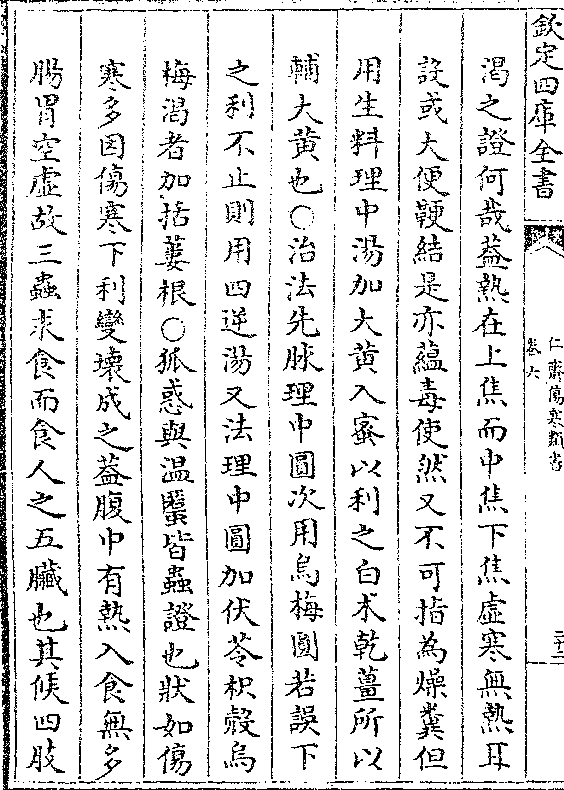 欽定四庫全書
仁齋傷寒類書
卷六
三十二
渴之證何哉葢熱在上焦而中焦下焦虛寒無熱耳
設或大便鞕結是亦蘊毒使然又不可指為燥糞但
用生料理中湯加大黄入蜜以利之白朮乾薑所以
輔大黄也○治法先脉理中圓次用烏梅圓若誤下
之利不止則用四逆湯又法理中圓加伏苓枳殻烏
梅渴者加括蔞根○狐惑與温䘌皆蟲證也狀如傷
寒多因傷寒下利變壊成之葢腹中有熱入食無多
腸胃空虛故三蟲求食而食人之五臟也其候四肢